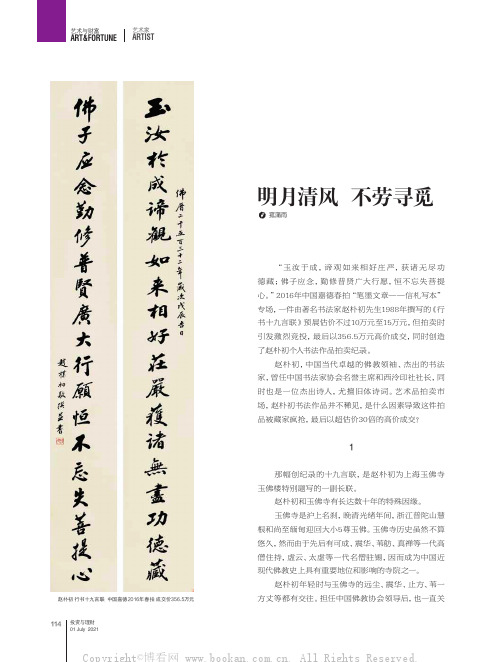 艺术与财富
ART&FORTUNE
艺术家
ARTIST
玉汝於成諦觀如来相好莊嚴獲諸無盡功德藏
佛曆二千五百三十二年歲次戊辰吉日
佛子应念勤修普賢廣大行願恒不忘失菩提心
趙樸初敬撰并書
赵朴初 行书十九言联 中国嘉德2016年春拍 成交价356.5万元
明月清风 不劳寻觅
“玉汝于成，谛观如来相好庄严，获诸无尽功
德藏；佛子应念，勤修普贤广大行愿，恒不忘失菩提
心。”2016年中国嘉德春拍“笔墨文章——信札写本”
专场，一件由著名书法家赵朴初先生1988年撰写的《行
书十九言联》预展估价不过10万元至15万元，但拍卖时
引发激烈竞投，最后以356.5万元高价成交，同时创造
了赵朴初个人书法作品拍卖纪录。
赵朴初，中国当代卓越的佛教领袖、杰出的书法
家，曾任中国书法家协会名誉主席和西泠印社社长，同
时也是一位杰出诗人，尤擅旧体诗词。艺术品拍卖市
场，赵朴初书法作品并不稀见，是什么因素导致这件拍
品被藏家疯抢，最后以超估价30倍的高价成交？
1
那幅创纪录的十九言联，是赵朴初为上海玉佛寺
玉佛楼特别题写的一副长联。
赵朴初和玉佛寺有长达数十年的特殊因缘。
玉佛寺是沪上名刹，晚清光绪年间，浙江普陀山慧
根和尚至缅甸迎回大小5尊玉佛。玉佛寺历史虽然不算
悠久，然而由于先后有可成、震华、苇舫、真禅等一代高
僧住持，虚云、太虚等一代名僧驻锡，因而成为中国近
现代佛教史上具有重要地位和影响的寺院之一。
赵朴初年轻时与玉佛寺的远尘、震华、止方、苇一
方丈等都有交往，担任中国佛教协会领导后，也一直关
114
投资与理财
01 July 2021
Copyright©博看网 www.bookan.com.cn. All Rights Reserved.